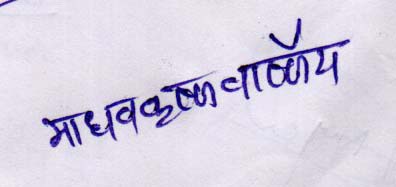 माधवकृष्णवार्ष्णेय